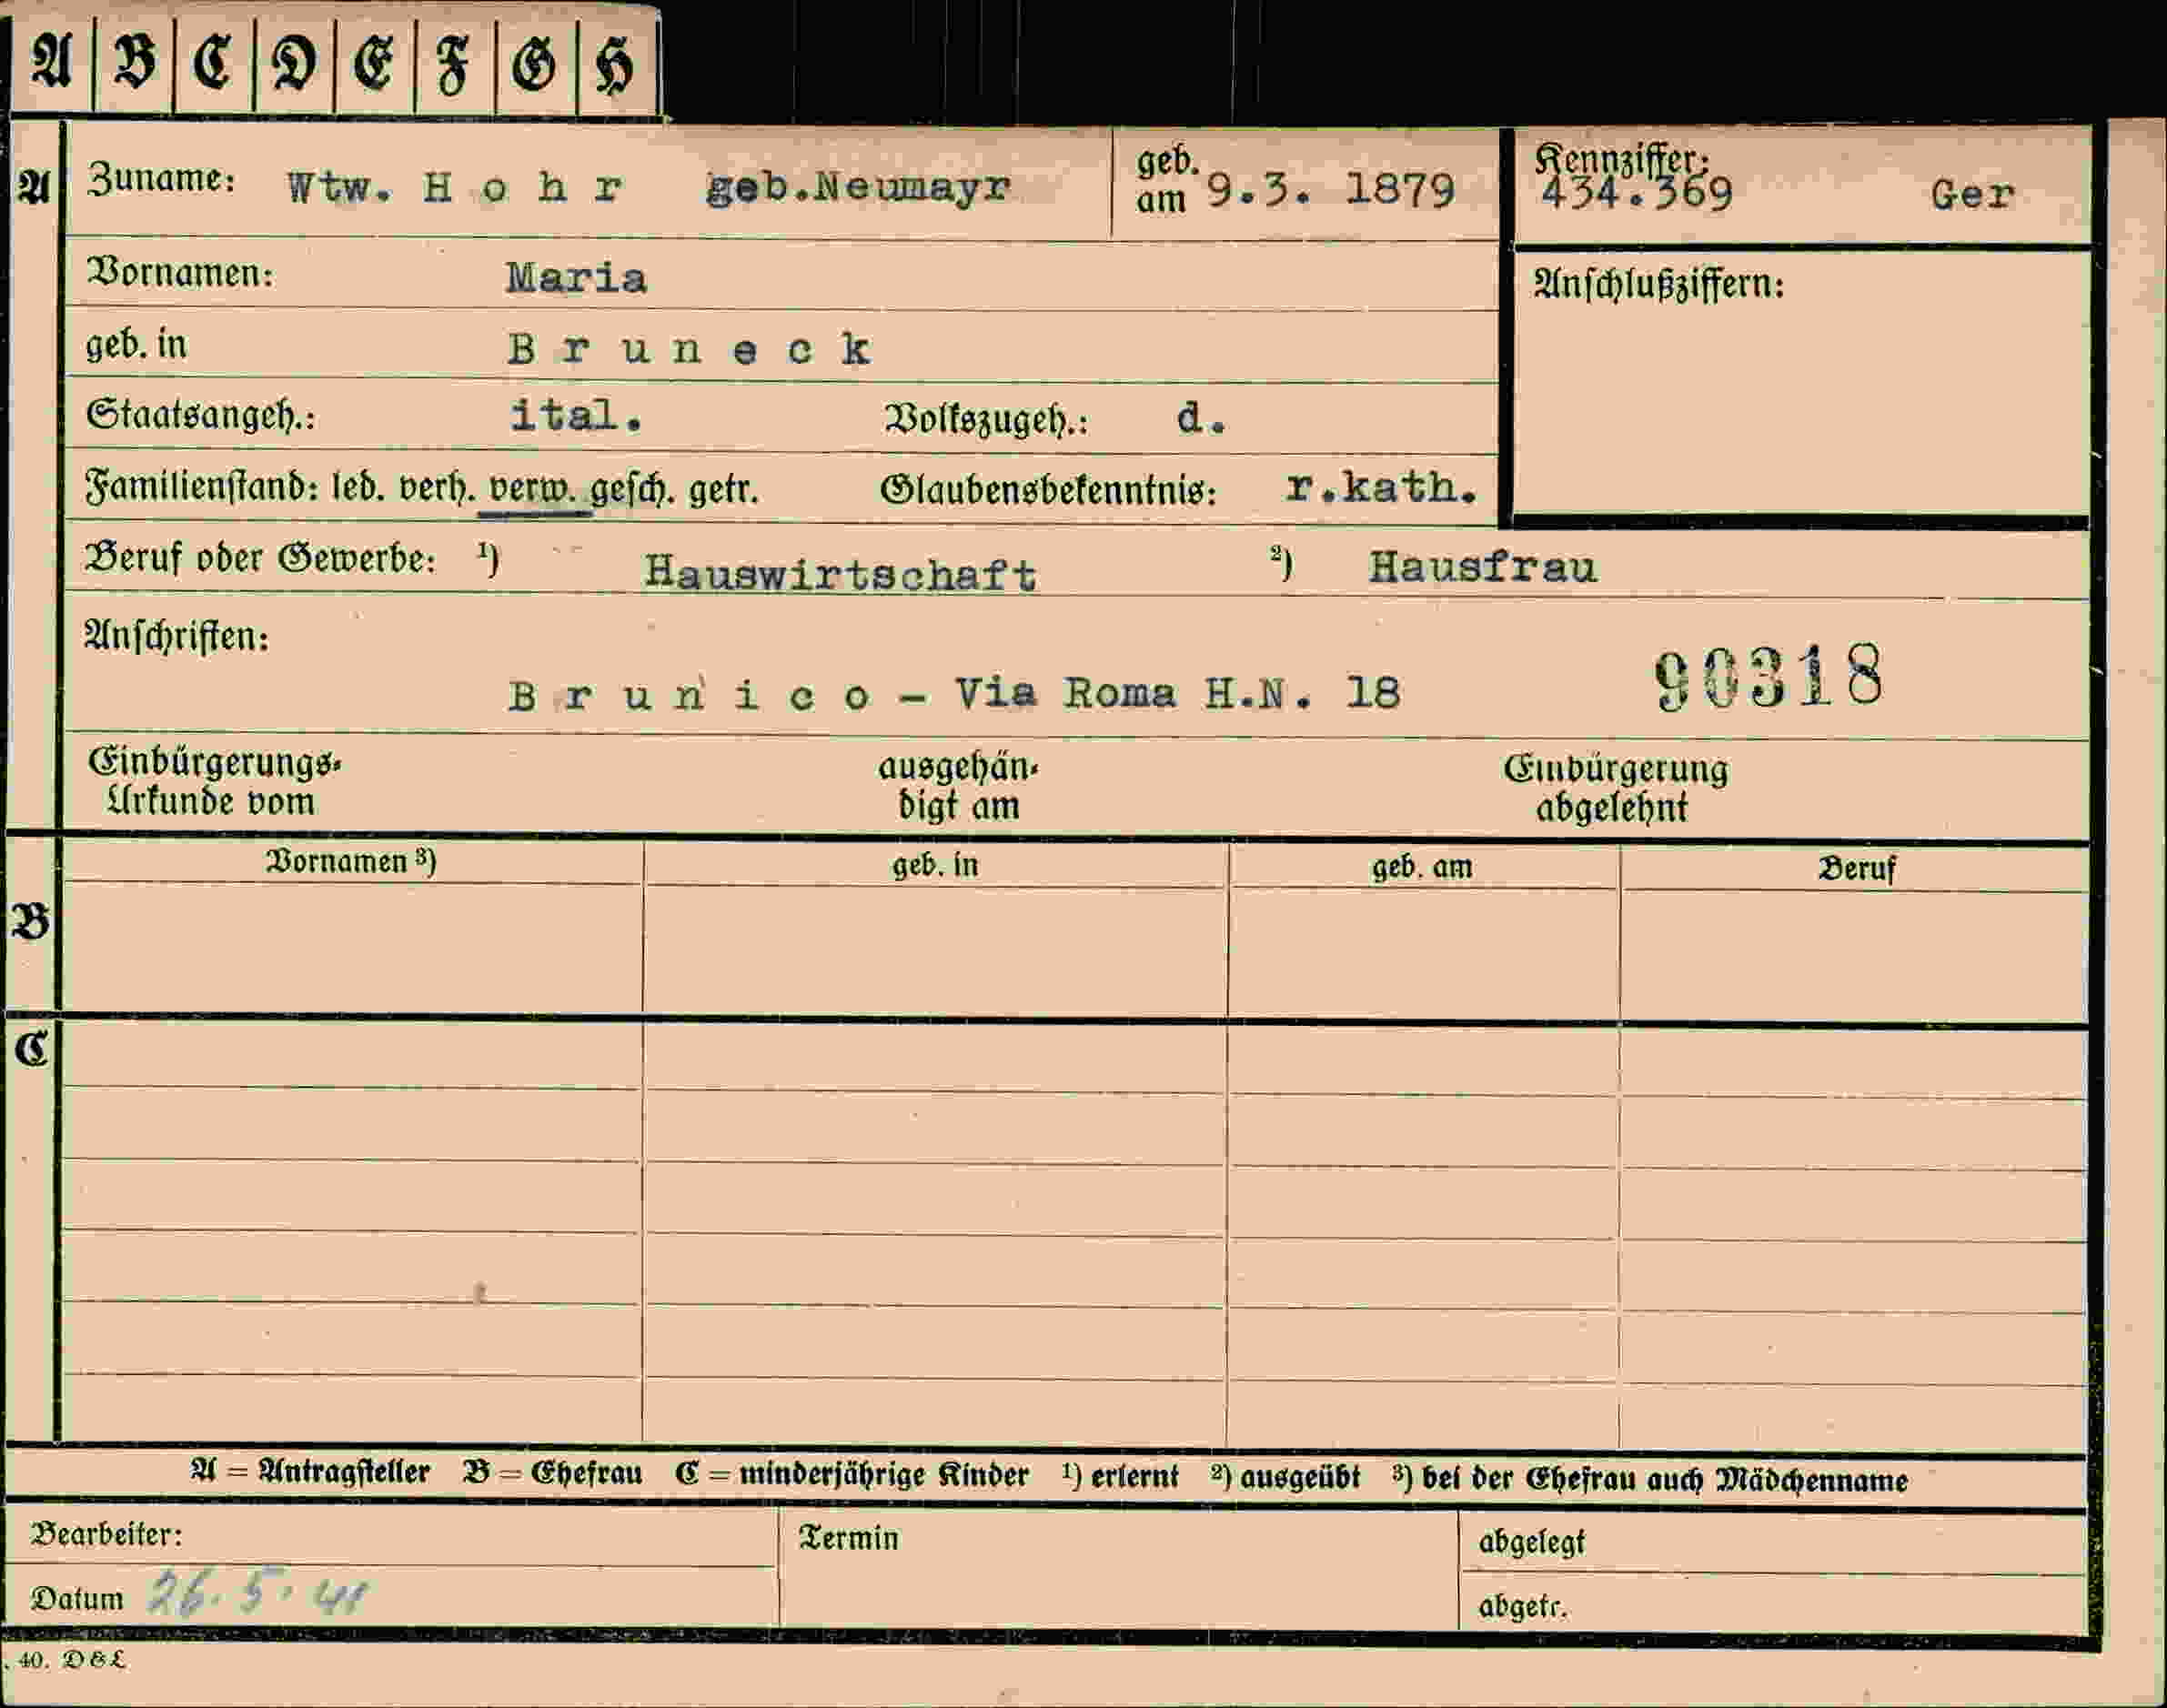 A B C D E F G H
A Zuname: Wtw. H o h r geb.Neumayr geb. am 9.3. 1879 Kennziffer: 434.369 Ger
Vornamen: Maria Anschlußziffern:
geb. in B r u n e c k
Staatsangeh.: ital. Volkszugeh.: d.
Familienstand: led. verh. verw. gesch. getr. Glaubensbekenntnis: r.kath.
Beruf oder Gewerbe: ¹) Hauswirtschaft ²) Hausfrau
Anschriften:
B r u n i c o - Via Roma H.N. 18 90318
Einbürgerungs- ausgehän- Einbürgerung
Urkunde vom digt am abgelehnt
Vornamen ³) geb. in geb. am Beruf
B
C
A = Antragsteller B = Ehefrau C = minderjährige Kinder ¹) erlernt ²) ausgeübt ³) bei der Ehefrau auch Mädchenname
Bearbeiter: Termin abgelegt
Datum 26.5.41 abgetr.
. 40. D&L